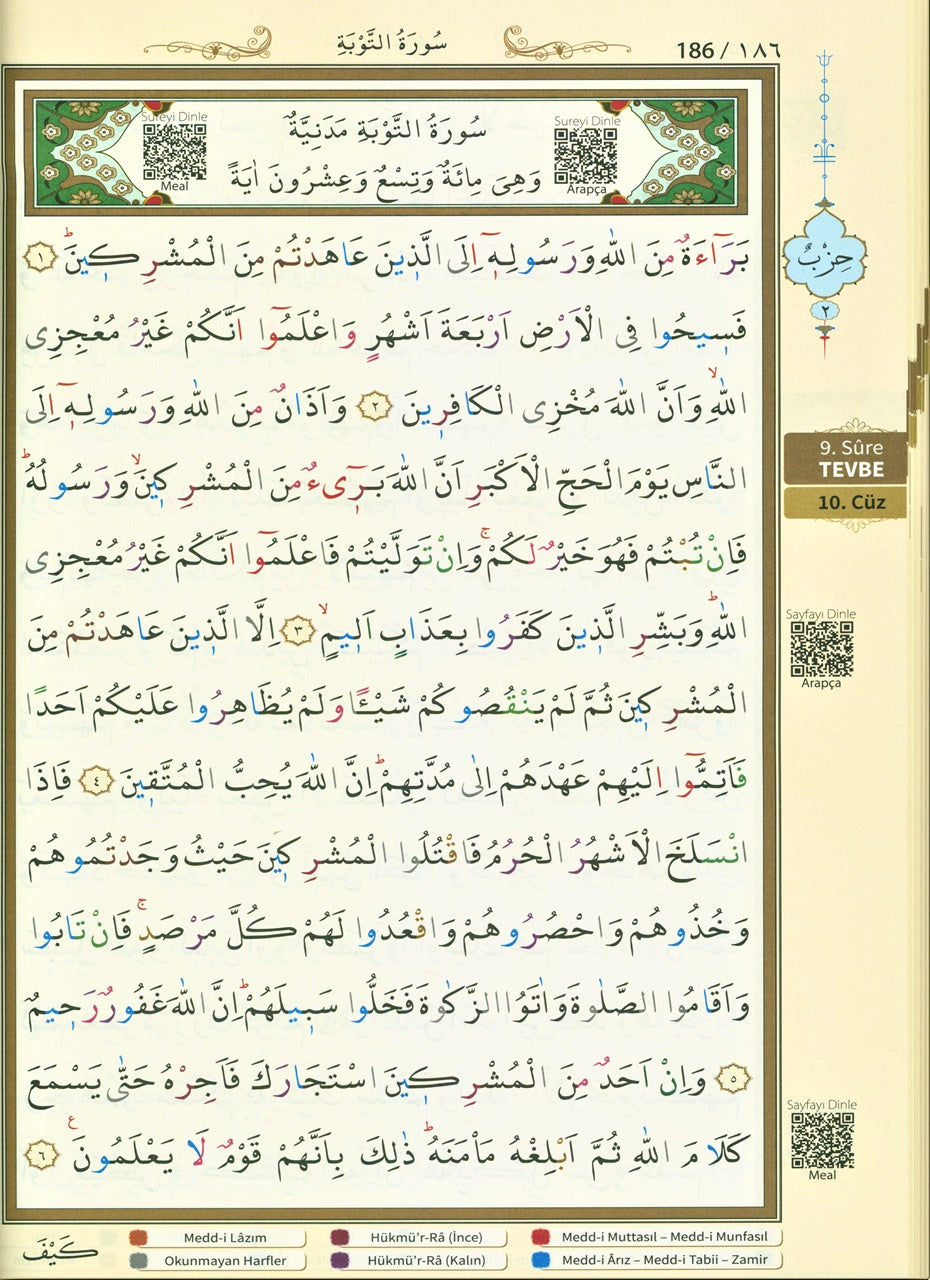 سُورَةُ التَّوْبَةِ
186 / ١٨٦
Sureyi Dinle
Meal
سُورَةُ التَّوْبَةِ مَدَنِيَّةٌ
وَهِىَ مِائَةٌ وَتِسْعٌ وَعِشْرُونَ اٰيَةً
Sureyi Dinle
Arapça
بَرَٓاءَةٌ مِنَ اللّٰهِ وَرَسُولِه۪ٓ اِلَى الَّذ۪ينَ عَاهَدْتُمْ مِنَ الْمُشْرِك۪ينَۜ ﴿١﴾
فَس۪يحُوا فِى الْاَرْضِ اَرْبَعَةَ اَشْهُرٍ وَاعْلَمُٓوا اَنَّكُمْ غَيْرُ مُعْجِزِى
اللّٰهِۙ وَاَنَّ اللّٰهَ مُخْزِى الْكَافِر۪ينَ ﴿٢﴾ وَاَذَانٌ مِنَ اللّٰهِ وَرَسُولِه۪ٓ اِلَى
النَّاسِ يَوْمَ الْحَجِّ الْاَكْبَرِ اَنَّ اللّٰهَ بَر۪ٓىءٌ مِنَ الْمُشْرِك۪ينَۙ وَرَسُولُهُۜ
فَاِنْ تُبْتُمْ فَهُوَ خَيْرٌ لَكُمْۚ وَاِنْ تَوَلَّيْتُمْ فَاعْلَمُٓوا اَنَّكُمْ غَيْرُ مُعْجِزِى
اللّٰهِۜ وَبَشِّرِ الَّذ۪ينَ كَفَرُوا بِعَذَابٍ اَل۪يمٍۙ ﴿٣﴾ اِلَّا الَّذ۪ينَ عَاهَدْتُمْ مِنَ
الْمُشْرِك۪ينَ ثُمَّ لَمْ يَنْقُصُوكُمْ شَيْـًٔا وَلَمْ يُظَاهِرُوا عَلَيْكُمْ اَحَدًا
فَاَتِمُّٓوا اِلَيْهِمْ عَهْدَهُمْ اِلٰى مُدَّتِهِمْۜ اِنَّ اللّٰهَ يُحِبُّ الْمُتَّق۪ينَ ﴿٤﴾ فَاِذَا
انْسَلَخَ الْاَشْهُرُ الْحُرُمُ فَاقْتُلُوا الْمُشْرِك۪ينَ حَيْثُ وَجَدْتُمُوهُمْ
وَخُذُوهُمْ وَاحْصُرُوهُمْ وَاقْعُدُوا لَهُمْ كُلَّ مَرْصَدٍۚ فَاِنْ تَابُوا
وَاَقَامُوا الصَّلٰوةَ وَاٰتَوُا الزَّكٰوةَ فَخَلُّوا سَب۪يلَهُمْۜ اِنَّ اللّٰهَ غَفُورٌ رَح۪يمٌ
﴿٥﴾ وَاِنْ اَحَدٌ مِنَ الْمُشْرِك۪ينَ اسْتَجَارَكَ فَاَجِرْهُ حَتّٰى يَسْمَعَ
كَلَامَ اللّٰهِ ثُمَّ اَبْلِغْهُ مَاْمَنَهُۜ ذٰلِكَ بِاَنَّهُمْ قَوْمٌ لَا يَعْلَمُونَ ۟ ﴿٦﴾
حِزْبٌ
٢
9. Sûre
TEVBE
10. Cüz
Sayfayı Dinle
Arapça
Sayfayı Dinle
Meal
Medd-i Lâzım
Hükmü'r-Râ (İnce)
Medd-i Muttasıl – Medd-i Munfasıl
Okunmayan Harfler
Hükmü'r-Râ (Kalın)
Medd-i Ârız – Medd-i Tabii – Zamir
كَيْفَ